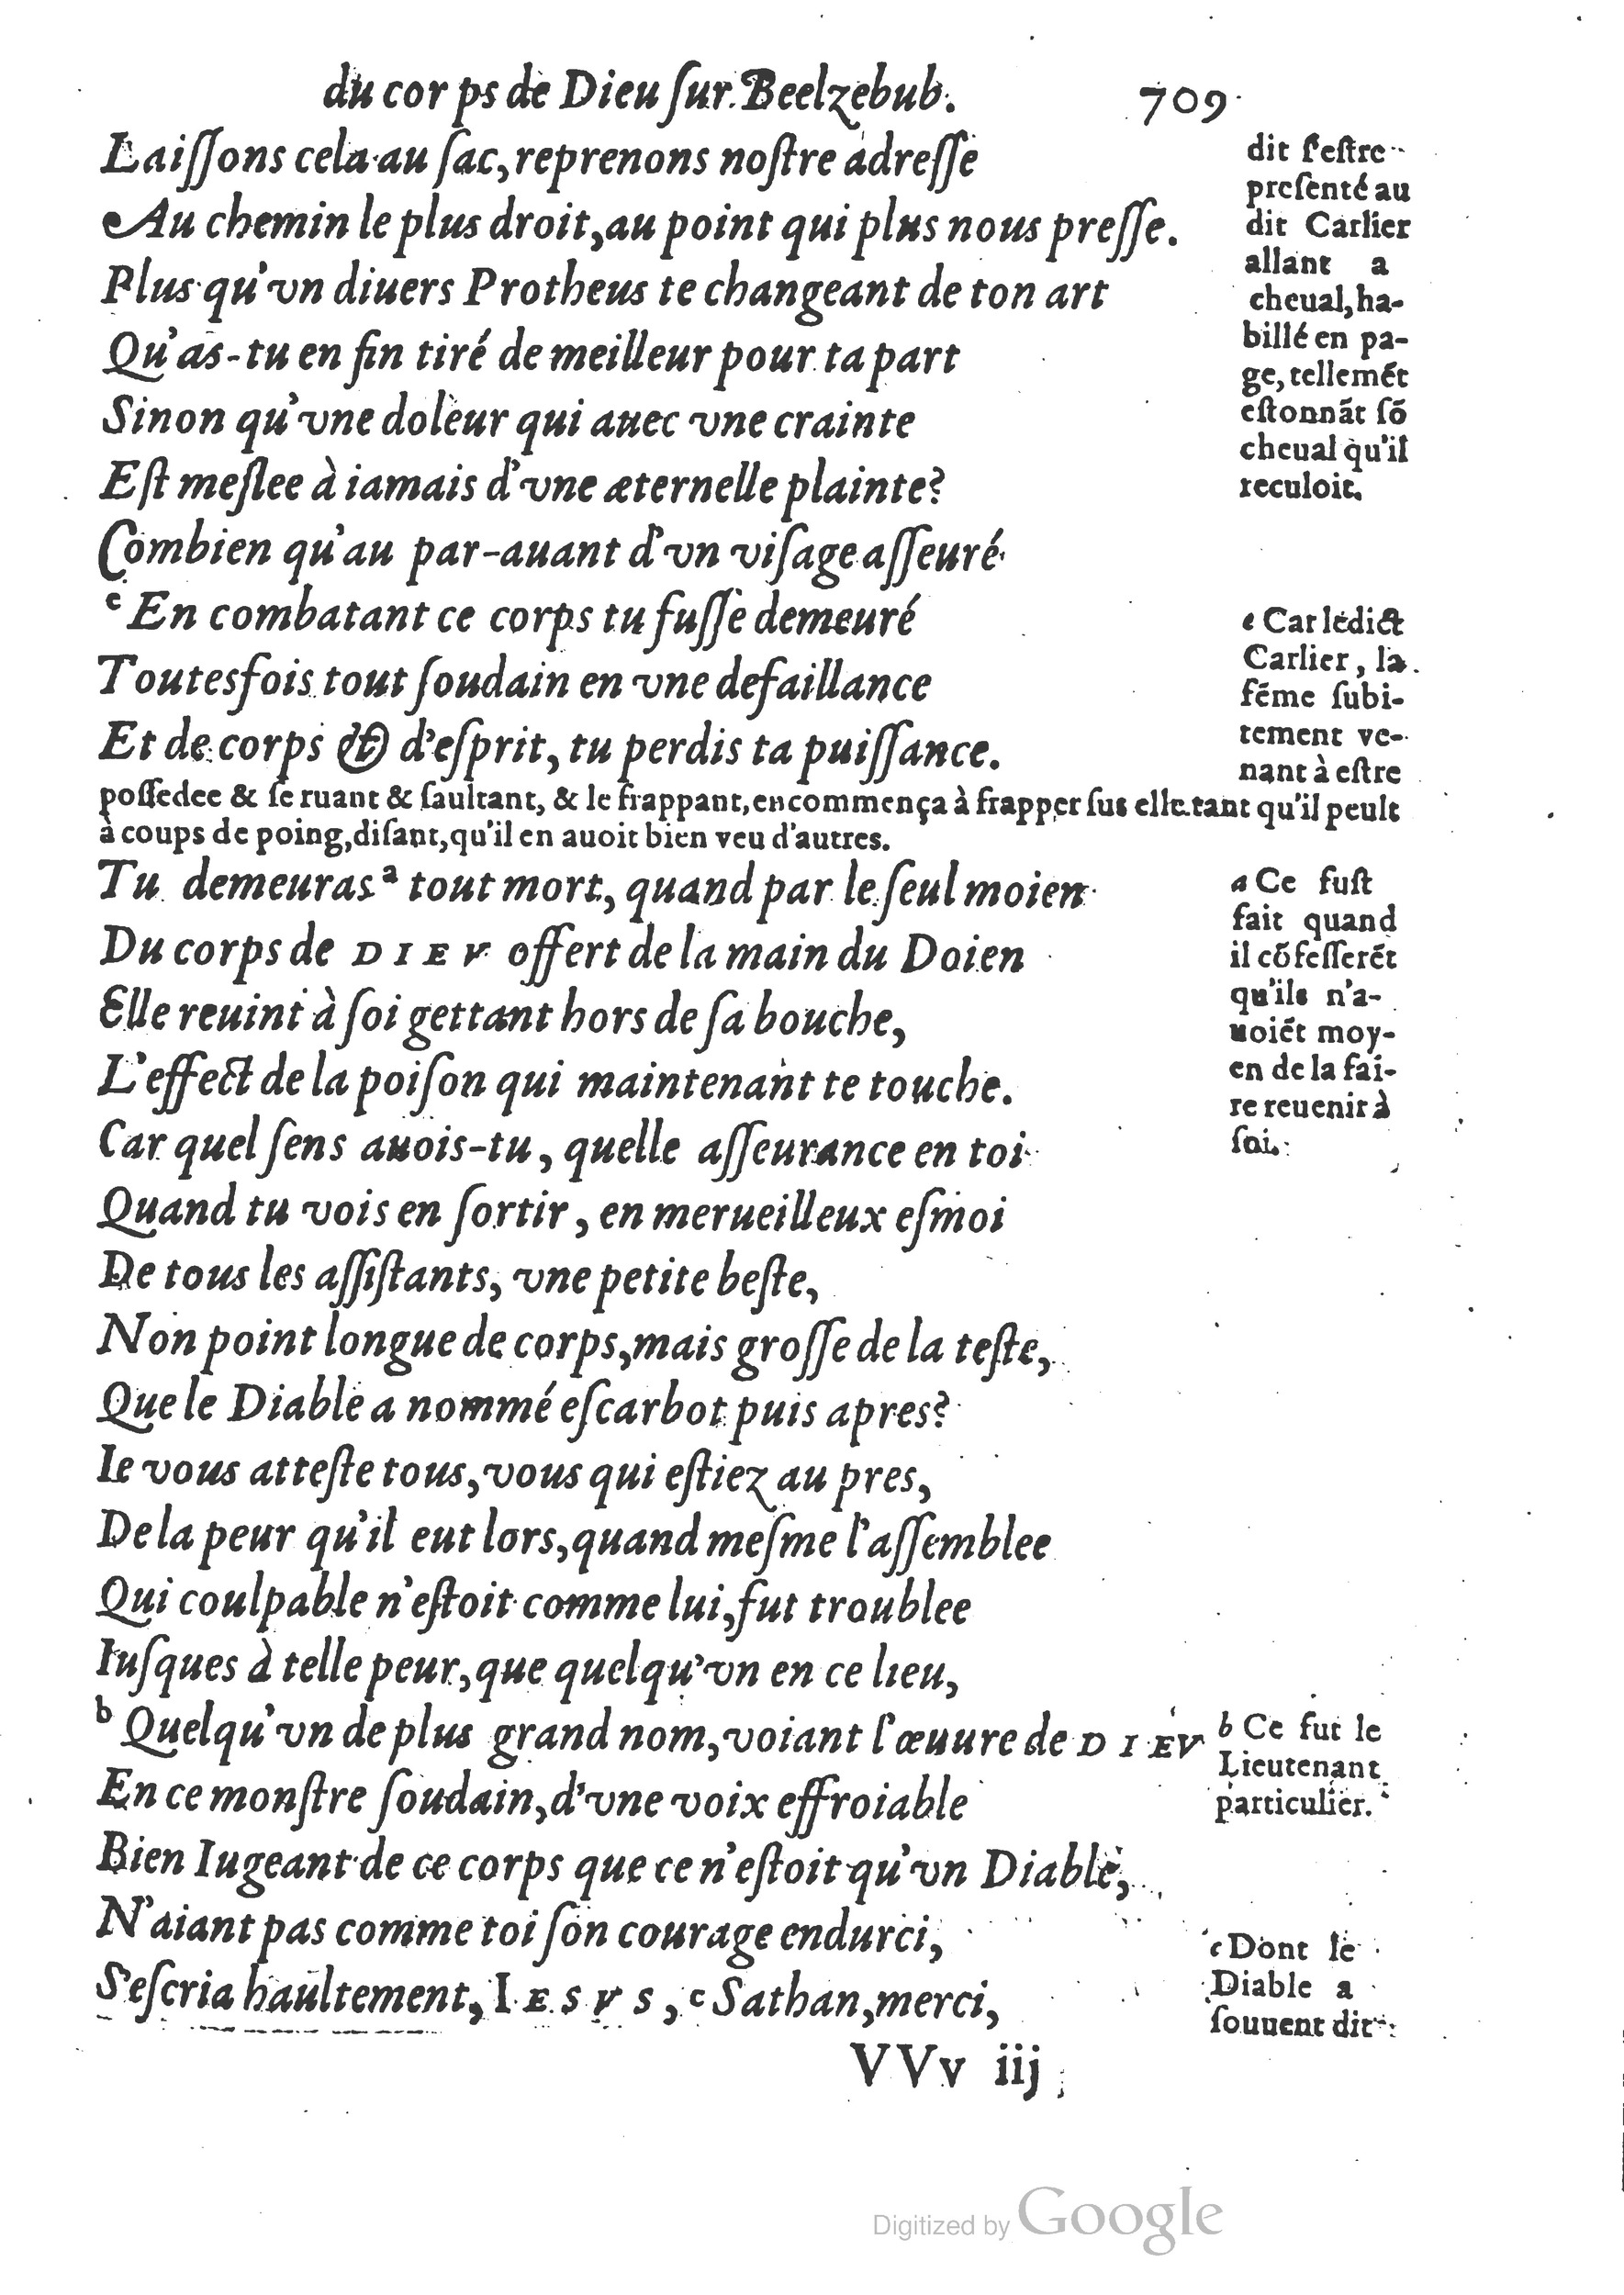 du corps de Dieu ſur Beelzebub. 709
Laiſſons cela au ſac, reprenons noſtre adreſſe
Au chemin le plus droit, au point qui plus nous preſſe.
Plus qu'vn diuers Protheus te changeant de ton art
Qu'as-tu en fin tiré de meilleur pour ta part
Sinon qu'vne doleur qui auec vne crainte
Eſt meſlee à iamais d'vne æternelle plainte?
Combien qu'au par-auant d'vn viſage aſſeuré
c En combatant ce corps tu fuſſe demeuré
Toutesfois tout ſoudain en vne defaillance
Et de corps & d'eſprit, tu perdis ta puiſſance.
dit s'eſtre
preſenté au
dit Carlier
allant a
cheual, ha-
billé en pa-
ge, tellemēt
eſtonnāt ſō
cheual qu'il
reculoit.
e Car ledict
Carlier, la
fēme ſubi-
tement ve-
nant à eſtre
poſſedee & ſe ruant & ſaultant, & le frappant, encommença à frapper ſus elle tant qu'il peult
à coups de poing, diſant, qu'il en auoit bien veu d'autres.
Tu demeuras a tout mort, quand par le ſeul moien
Du corps de DIEV offert de la main du Doien
Elle reuint à ſoi gettant hors de ſa bouche,
L'effect de la poiſon qui maintenant te touche.
Car quel ſens auois-tu, quelle aſſeurance en toi
Quand tu vois en ſortir, en merueilleux eſmoi
De tous les aſſiſtants, vne petite beſte,
Non point longue de corps, mais groſſe de la teſte,
Que le Diable a nommé eſcarbot puis apres?
Ie vous atteſte tous, vous qui eſtiez au pres,
De la peur qu'il eut lors, quand meſme l'aſſemblee
Qui coulpable n'eſtoit comme lui, fut troublee
Iuſques à telle peur, que quelqu'vn en ce lieu,
b Quelqu'vn de plus grand nom, voiant l'œuure de DIEV
En ce monſtre ſoudain, d'vne voix effroiable
Bien Iugeant de ce corps que ce n'eſtoit qu'vn Diable,
N'aiant pas comme toi ſon courage endurci,
S'eſcria haultement, IESVS, c Sathan, merci,
a Ce fuſt
fait quand
il cōfeſſerēt
qu'ils n'a-
uoiēt moy-
en de la fai-
re reuenir à
ſoi.
b Ce fut le
Lieutenant
particulier.
c Dont le
Diable a
ſouuent dit
VVv iij
Digitized by Google